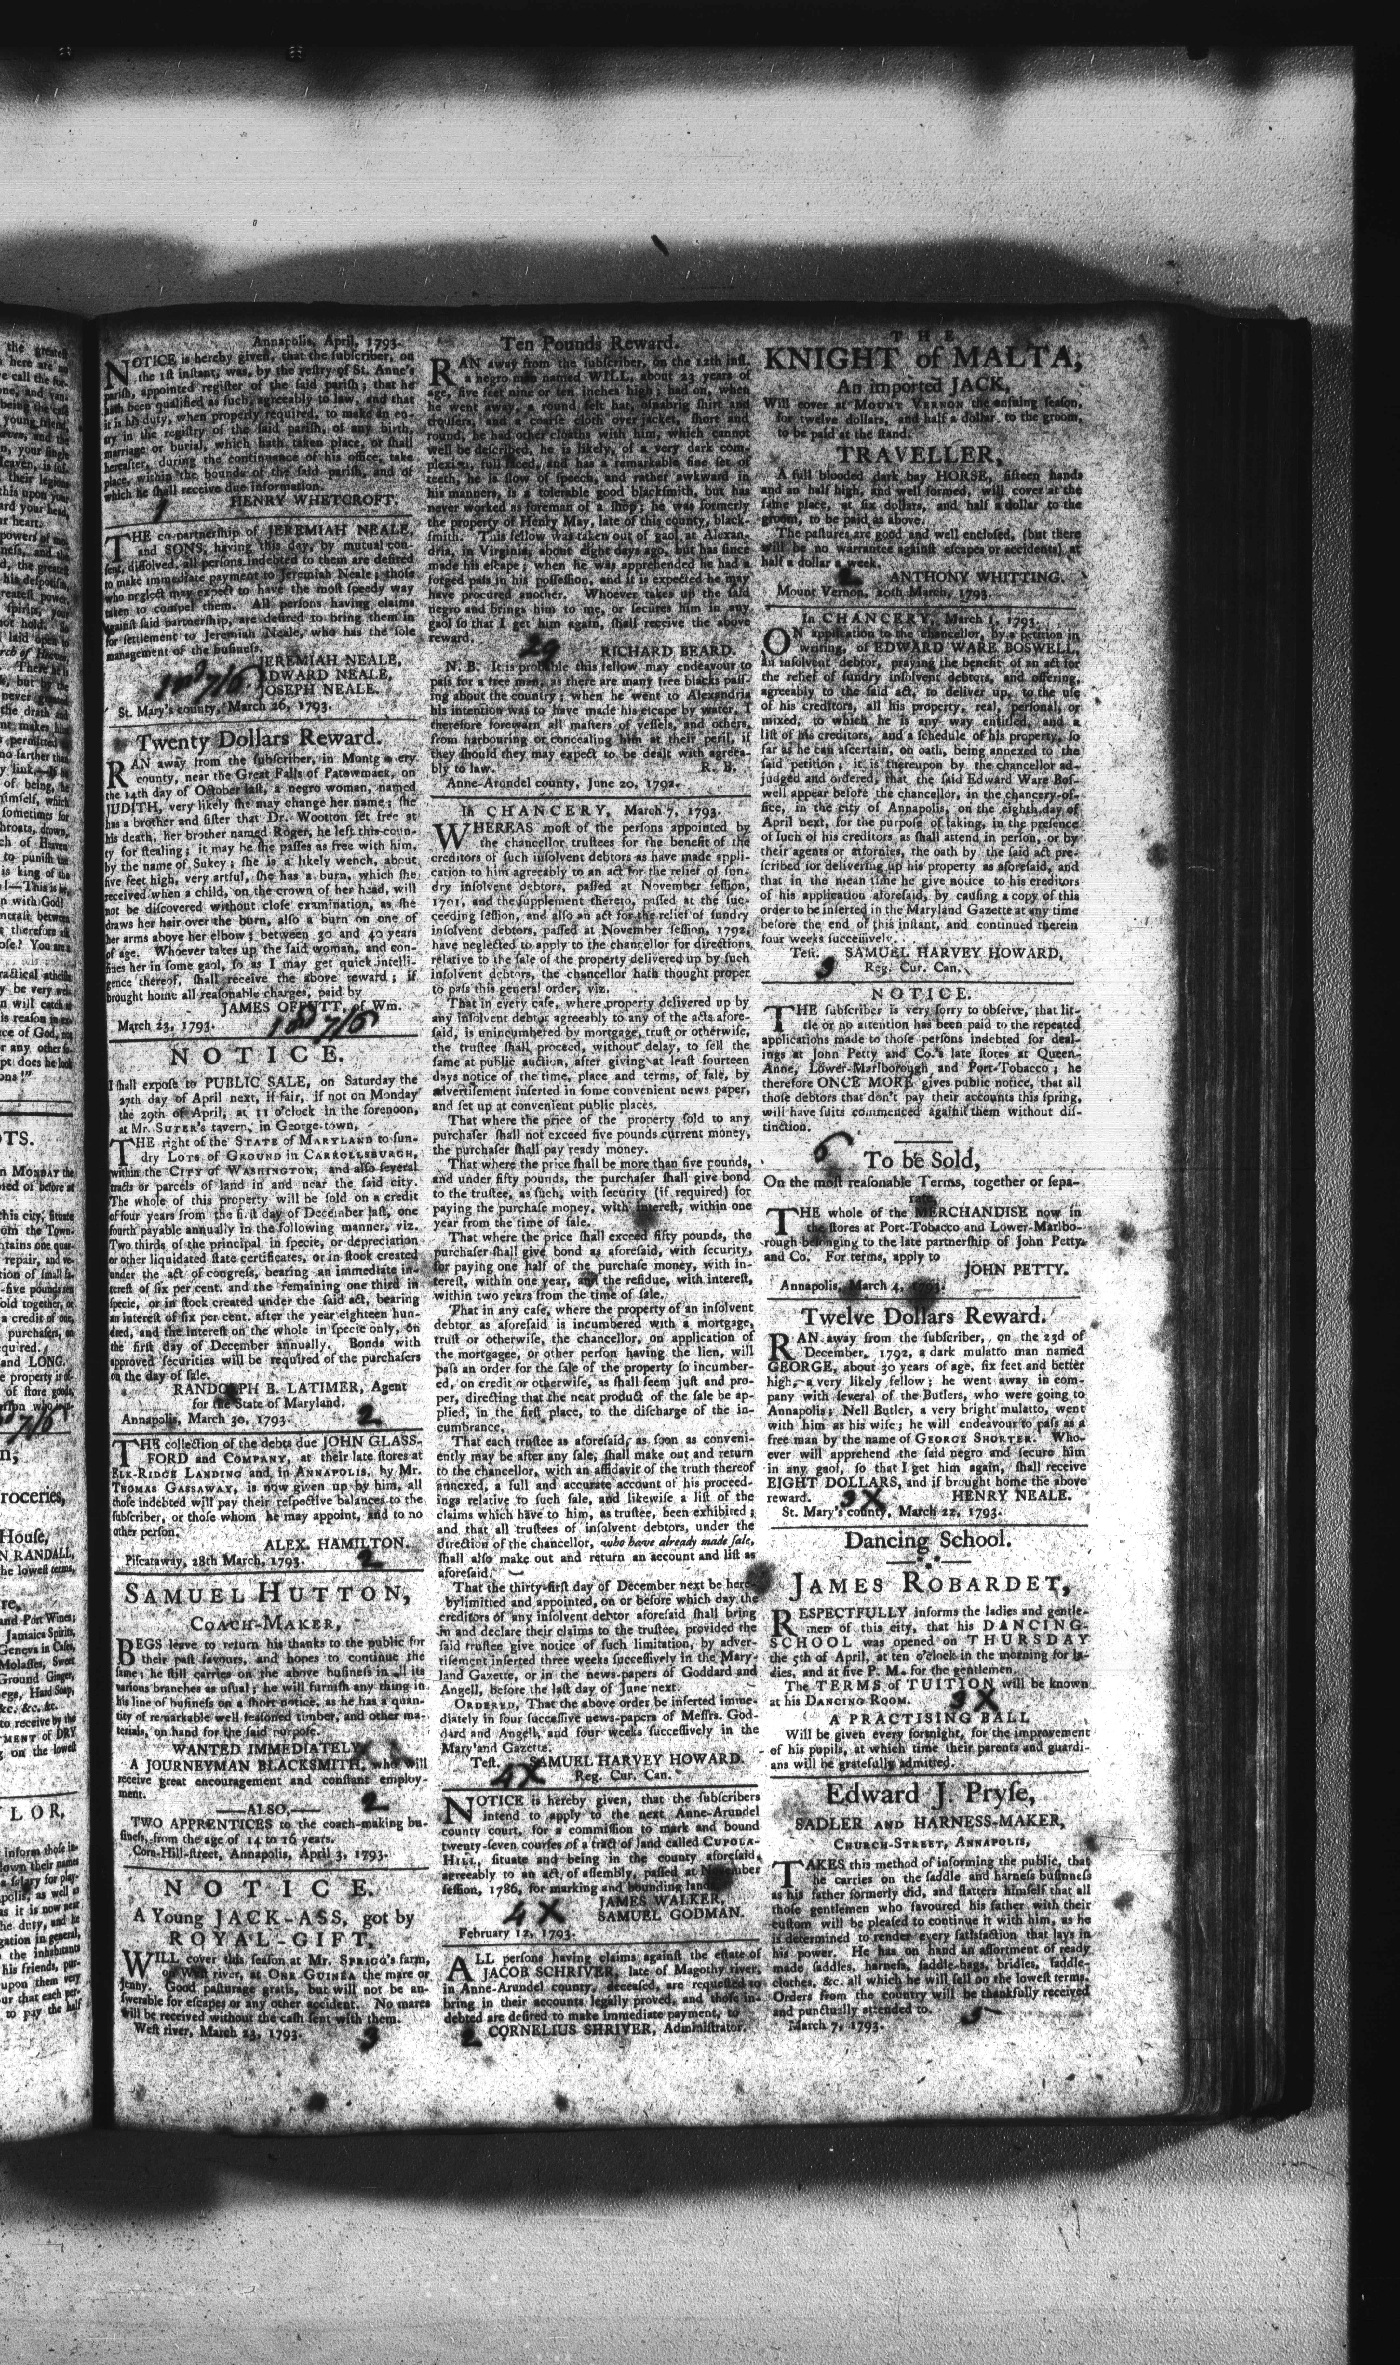 Annapolis, April, 1793.
NOTICE is hereby given, that the ſubſcriber, on
the 1ſt inſtant, was, by the veſtry of St. Anne's
pariſh, appointed regiſter of the ſaid pariſh; that he
hath been qualified as ſuch, agreeably to law, and that
it is his duty, when properly required, to make an en-
try in the regiſtry of the ſaid pariſh, of any birth,
marriage or burial, which hath taken place, or ſhall
hereafter, during the continuance of his office, take
place, within the bounds of the ſaid pariſh, and of
which he ſhall receive due information.
HENRY WHETCROFT.
1
THE co-partnerſhip of JEREMIAH NEALE,
and SONS, having this day, by mutual con-
ſent, diſſolved, all perſons indebted to them are deſired
to make immediate payment to Jeremiah Neale; thoſe
who neglect may expect to have the moſt ſpeedy way
taken to compel them. All perſons having claims
againſt ſaid partnerſhip, are deſired to bring them in
for ſettlement to Jeremiah Neale, who has the ſole
management of the buſineſs.
JEREMIAH NEALE,
EDWARD NEALE,
JOSEPH NEALE.
St. Mary's county, March 26, 1793.
Twenty Dollars Reward.
RAN away from the ſubſcriber, in Montg ery
county, near the Great Falls of Patowmack, on
the 14th day of October laſt, a negro woman, named
JUDITH, very likely ſhe may change her name; ſhe
has a brother and ſiſter that Dr. Wootton ſet free at
his death, her brother named Roger, he left this coun-
ty for ſtealing; it may be ſhe paſſes as free with him,
by the name of Sukey; ſhe is a likely wench, about
five feet high, very artful, ſhe has a burn, which ſhe
received when a child, on the crown of her head, will
not be diſcovered without cloſe examination, as ſhe
draws her hair over the burn, alſo a burn on one of
her arms above her elbow; between 30 and 40 years
of age. Whoever takes up the ſaid woman, and con-
fines her in ſome gaol, ſo as I may get quick intelli-
gence thereof, ſhall receive the above reward; if
brought home all reaſonable charges, paid by
JAMES OFFUTT, of Wm.
March 23, 1793.
NOTICE.
I ſhall expoſe to PUBLIC SALE, on Saturday the
27th day of April next, if fair, if not on Monday
the 29th of April, at 11 o'clock in the forenoon,
at Mr. SUTER's tavern, in George-town,
THE right of the STATE of MARYLAND to ſun-
dry LOTS of GROUND in CARROLLSBURGH,
within the CITY of WASHINGTON, and alſo ſeveral
tracts or parcels of land in and near the ſaid city.
The whole of this property will be ſold on a credit
of four years from the firſt day of December laſt, one
fourth payable annually in the following manner, viz.
Two thirds of the principal in ſpecie, or depreciation
or other liquidated ſtate certificates, or in ſtock created
under the act of congreſs, bearing an immediate in-
tereſt of ſix per cent. and the remaining one third in
ſpecie, or in ſtock created under the ſaid act, bearing
an intereſt of ſix per cent. after the year eighteen hun-
dred, and the intereſt on the whole in ſpecie only, on
the firſt day of December annually. Bonds with
approved ſecurities will be required of the purchaſers
on the day of ſale.
RANDOLPH B. LATIMER, Agent
for the State of Maryland.
Annapolis, March 30, 1793. 2
THE collection of the debts due JOHN GLASS-
FORD and COMPANY, at their late ſtores at
ELK-RIDGE LANDING and in ANNAPOLIS, by Mr.
THOMAS GASSAWAY, is now given up by him, all
thoſe indebted will pay their reſpective balances to the
ſubſcriber, or thoſe whom he may appoint, and to no
other perſon.
ALEX. HAMILTON.
Piſcataway, 28th March, 1793. 2
SAMUEL HUTTON,
COACH-MAKER,
BEGS leave to return his thanks to the public for
their paſt favours, and hopes to continue the
ſame; he ſtill carries on the above buſineſs in all its
various branches as uſual; he will furniſh any thing in
his line of buſineſs on a ſhort notice, as he has a quan-
tity of remarkable well ſeaſoned timber, and other ma-
terials, on hand for the ſaid purpoſe.
WANTED IMMEDIATELY,
A JOURNEYMAN BLACKSMITH, who will
receive great encouragement and conſtant employ-
ment.
—ALSO,—
2
TWO APPRENTICES to the coach-making bu-
ſineſs, from the age of 14 to 16 years.
Corn-Hill-ſtreet, Annapolis, April 3, 1793.
NOTICE.
A Young JACK-ASS, got by
ROYAL-GIFT,
WILL cover this ſeaſon at Mr. SPRIGG's farm,
on Weſt river, at ONE GUINEA the mare or
Jenny. Good paſturage gratis, but will not be an-
ſwerable for eſcapes or any other accident. No mares
will be received without the caſh ſent with them.
Weſt river, March 23, 1793. 3
Ten Pounds Reward.
RAN away from the ſubſcriber, on the 12th inſt.
a negro man named WILL, about 23 years of
age, five feet nine or ten inches high; had on, when
he went away, a round felt hat, oſnabrig ſhirt and
trouſers, and a coarſe cloth over jacket, ſhort and
round, he had other cloaths with him, which cannot
well be deſcribed, he is likely, of a very dark com-
plexion, full faced, and has a remarkable fine ſet of
teeth, he is ſlow of ſpeech, and rather awkward in
his manners, is a tolerable good blackſmith, but has
never worked as foreman of a ſhop; he was formerly
the property of Henry May, late of this county, black-
ſmith. This fellow was taken out of gaol at Alexan-
dria, in Virginia, about eight days ago, but has ſince
made his eſcape; when he was apprehended he had a
forged paſs in his poſſeſſion, and it is expected he may
have procured another. Whoever takes up the ſaid
negro and brings him to me, or ſecures him in any
gaol ſo that I get him again, ſhall receive the above
reward.
29
RICHARD BEARD.
N. B. It is probable this fellow may endeavour to
paſs for a free man, as there are many free blacks paſſ-
ing about the country; when he went to Alexandria
his intention was to have made his eſcape by water, I
therefore forewarn all maſters of veſſels, and others,
from harbouring or concealing him at their peril, if
they ſhould they may expect to be dealt with agreea-
bly to law. R. B.
Anne-Arundel county, June 20, 1792.
In CHANCERY, March 7, 1793.
WHEREAS moſt of the perſons appointed by
the chancellor truſtees for the benefit of the
creditors of ſuch inſolvent debtors as have made appli-
cation to him agreeably to an act for the relief of ſun-
dry inſolvent debtors, paſſed at November ſeſſion,
1791, and the ſupplement thereto, paſſed at the ſuc-
ceeding ſeſſion, and alſo an act for the relief of ſundry
inſolvent debtors, paſſed at November ſeſſion, 1792,
have neglected to apply to the chancellor for directions
relative to the ſale of the property delivered up by ſuch
inſolvent debtors, the chancellor hath thought proper
to paſs this general order, viz.
That in every caſe, where property delivered up by
any inſolvent debtor agreeably to any of the acts afore-
ſaid, is unincumbered by mortgage, truſt or otherwiſe,
the truſtee ſhall proceed, without delay, to ſell the
ſame at public auction, after giving at leaſt fourteen
days notice of the time, place and terms, of ſale, by
advertiſement inſerted in ſome convenient news paper,
and ſet up at convenient public places.
That where the price of the property ſold to any
purchaſer ſhall not exceed five pounds current money,
the purchaſer ſhall pay ready money.
That where the price ſhall be more than five pounds,
and under fifty pounds, the purchaſer ſhall give bond
to the truſtee, as ſuch, with ſecurity (if required) for
paying the purchaſe money, with intereſt, within one
year from the time of ſale.
That where the price ſhall exceed fifty pounds, the
purchaſer ſhall give bond as aforeſaid, with ſecurity,
for paying one half of the purchaſe money, with in-
tereſt, within one year, and the reſidue, with intereſt,
within two years from the time of ſale.
That in any caſe, where the property of an inſolvent
debtor as aforeſaid is incumbered with a mortgage,
truſt or otherwiſe, the chancellor, on application of
the mortgagee, or other perſon having the lien, will
paſs an order for the ſale of the property ſo incumber-
ed, on credit or otherwiſe, as ſhall ſeem juſt and pro-
per, directing that the neat product of the ſale be ap-
plied, in the firſt place, to the diſcharge of the in-
cumbrance.
That each truſtee as aforeſaid, as ſoon as conveni-
ently may be after any ſale, ſhall make out and return
to the chancellor, with an affidavit of the truth thereof
annexed, a full and accurate account of his proceed-
ings relative to ſuch ſale, and likewiſe a liſt of the
claims which have to him, as truſtee, been exhibited;
and that all truſtees of inſolvent debtors, under the
direction of the chancellor, who have already made ſale,
ſhall alſo make out and return an account and liſt as
aforeſaid.
That the thirty-firſt day of December next be here-
by limitied and appointed, on or before which day the
creditors of any inſolvent debtor aforeſaid ſhall bring
in and declare their claims to the truſtee, provided the
ſaid truſtee give notice of ſuch limitation, by adver-
tiſement inſerted three weeks ſucceſſively in the Mary-
land Gazette, or in the news-papers of Goddard and
Angell, before the laſt day of June next.
ORDERED, That the above order be inſerted imme-
diately in four ſucceſſive news-papers of Meſſrs. God-
dard and Angell, and four weeks ſucceſſively in the
Maryland Gazette.
Teſt. SAMUEL HARVEY HOWARD.
Reg. Cur. Can.
4X
NOTICE is hereby given, that the ſubſcribers
intend to apply to the next Anne-Arundel
county court, for a commiſſion to mark and bound
twenty-ſeven courſes of a tract of land called CUPOLA-
HILL, ſituate and being in the county aforeſaid,
agreeably to an act of aſſembly, paſſed at November
ſeſſion, 1786, for marking and bounding land
JAMES WALKER,
SAMUEL GODMAN.
4X
February 12, 1793.
ALL perſons having claims againſt the eſtate of
JACOB SCHRIVER, late of Magothy river,
in Anne-Arundel county, deceaſed, are requeſted to
bring in their accounts legally proved, and thoſe in-
debted are deſired to make immediate payment, to
2 CORNELIUS SHRIVER, Adminiſtrator.
THE
KNIGHT of MALTA,
An imported JACK,
Will cover at MOUNT VERNON the enſuing ſeaſon,
for twelve dollars, and half a dollar to the groom,
to be paid at the ſtand.
TRAVELLER,
A full blooded dark bay HORSE, fifteen hands
and an half high, and well formed, will cover at the
ſame place, at ſix dollars, and half a dollar to the
groom, to be paid as above.
The paſtures are good and well encloſed, (but there
will be no warrantee againſt eſcapes or accidents) at
half a dollar a week.
2 ANTHONY WHITTING.
Mount Vernon, 20th March, 1793.
In CHANCERY, March 1, 1793.
ON application to the chancellor, by a petition in
writing, of EDWARD WARE BOSWELL,
an inſolvent debtor, praying the benefit of an act for
the relief of ſundry inſolvent debtors, and offering,
agreeably to the ſaid act, to deliver up, to the uſe
of his creditors, all his property, real, perſonal, or
mixed, to which he is any way entitled, and a
liſt of his creditors, and a ſchedule of his property, ſo
far as he can aſcertain, on oath, being annexed to the
ſaid petition; it is thereupon by the chancellor ad-
judged and ordered, that the ſaid Edward Ware Boſ-
well appear before the chancellor, in the chancery-of-
fice, in the city of Annapolis, on the eighth day of
April next, for the purpoſe of taking, in the preſence
of ſuch of his creditors as ſhall attend in perſon, or by
their agents or attornies, the oath by the ſaid act pre-
ſcribed for delivering up his property as aforeſaid, and
that in the mean time he give notice to his creditors
of his application aforeſaid, by cauſing a copy of this
order to be inſerted in the Maryland Gazette at any time
before the end of this inſtant, and continued therein
four weeks ſucceſſively.
Teſt. SAMUEL HARVEY HOWARD,
3 Reg. Cur. Can.
NOTICE.
THE ſubſcriber is very ſorry to obſerve, that lit-
tle or no attention has been paid to the repeated
applications made to thoſe perſons indebted for deal-
ings at John Petty and Co.'s late ſtores at Queen-
Anne, Lower-Marlborough, and Port-Tobacco; he
therefore ONCE MORE gives public notice, that all
thoſe debtors that don't pay their accounts this ſpring,
will have ſuits commenced againſt them without diſ-
tinction.
6
To be Sold,
On the moſt reaſonable Terms, together or ſepa-
rate,
THE whole of the MERCHANDISE now in
the ſtores at Port-Tobacco and Lower-Marlbo-
rough belonging to the late partnerſhip of John Petty
and Co. For terms, apply to
JOHN PETTY.
Annapolis, March 4, 1793.
Twelve Dollars Reward.
RAN away from the ſubſcriber, on the 23d of
December, 1792, a dark mulatto man named
GEORGE, about 30 years of age, ſix feet and better
high, a very likely fellow; he went away in com-
pany with ſeveral of the Butlers, who were going to
Annapolis; Nell Butler, a very bright mulatto, went
with him as his wife; he will endeavour to paſs as a
free man by the name of GEORGE SHORTER. Who-
ever will apprehend the ſaid negro and ſecure him
in any gaol, ſo that I get him again, ſhall receive
EIGHT DOLLARS, and if brought home the above
reward. 3X HENRY NEALE.
St. Mary's county, March 22, 1793.
Dancing School.
JAMES ROBARDET,
RESPECTFULLY informs the ladies and gentle-
men of this city, that his DANCING-
SCHOOL was opened on THURSDAY
the 5th of April, at ten o'clock in the morning for la-
dies, and at five P. M. for the gentlemen.
The TERMS of TUITION will be known
at his DANCING ROOM. 3X
A PRACTISING BALL
Will be given every fortnight, for the improvement
of his pupils, at which time their parents and guardi-
ans will be gratefully admitted.
Edward J. Pryſe,
SADLER AND HARNESS-MAKER,
CHURCH-STREET, ANNAPOLIS,
TAKES this method of informing the public, that
he carries on the ſaddle and harneſs buſinneſs
as his father formerly did, and flatters himſelf that all
thoſe gentlemen who favoured his father with their
cuſtom will be pleaſed to continue it with him, as he
is determined to render every ſatisfaction that lays in
his power. He has on hand an aſſortment of ready
made ſaddles, harneſs, ſaddle-bags, bridles, ſaddle-
clothes, &c. all which he will ſell on the loweſt terms.
Orders from the country will be thankfully received
and punctually attended to. 5
March 7, 1793.